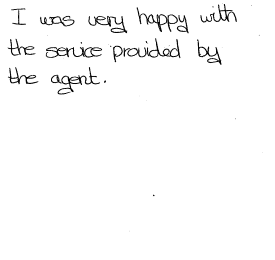 I was very happy with
the service provided by
the agent.